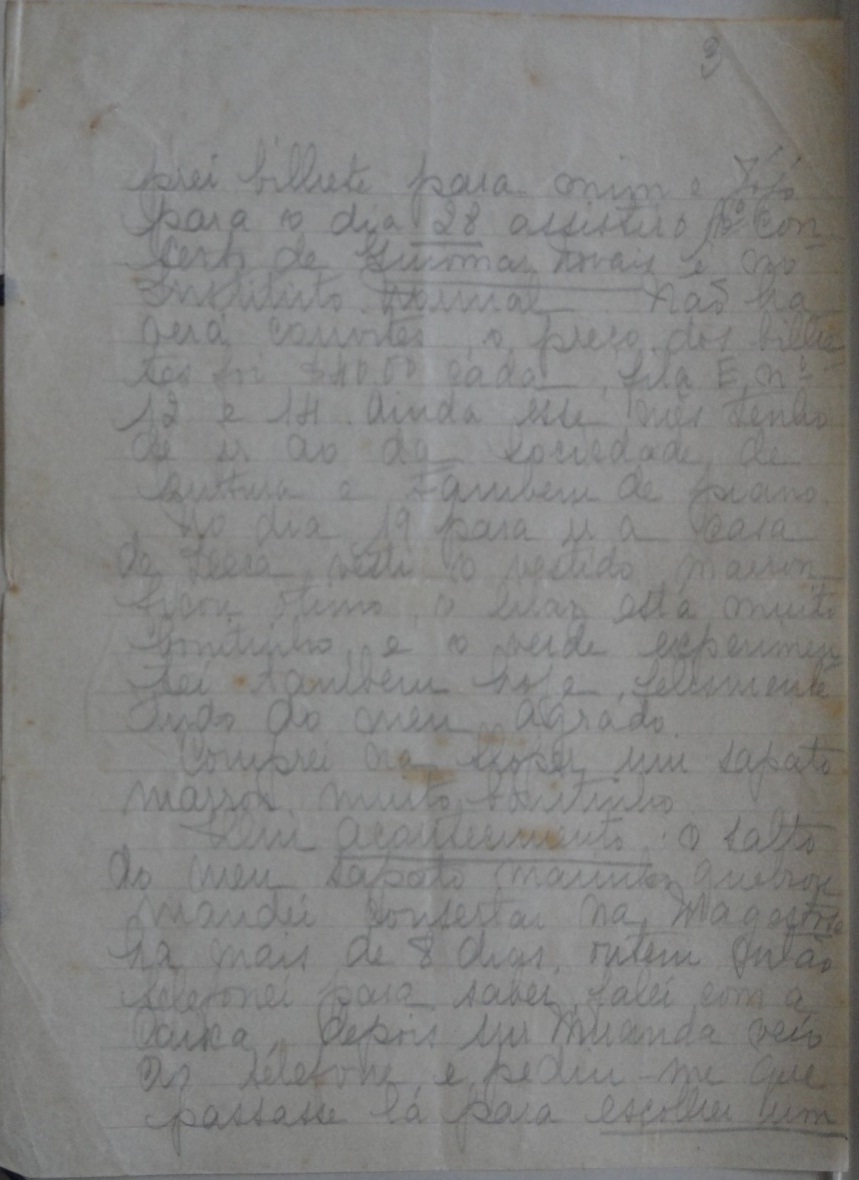 3
prei bilhete para mim e Jójó
para o dia 28 assistir o 1º Con
serto de Guiomar Novais e no
Instituto Normal. Não ha
verá convites, o preço dos bilhe
tes foi cada, fila E, nº
12 e 14. Ainda esse mês tenho
de ir ao da sociedade de
cultura e tambem de piano.
No dia 19 para ir a casa
de vesti o vestido marron
ficou otimo, o lilaz está muito
bonitinho, e o verde experimen
tei tambem hoje, felismente
tudo do meu agrado.
Comprei na um sapato
marron, muito bonitinho.
Um acontecimento: o salto
do meu sapato marinho quebrou
mandei consertar na
ha mais de 8 dias, ontem então
telefonei para saber, falei com a
caixa, depois seu Miranda veio
ao telefone e pediu-me que
passasse lá para escolher um